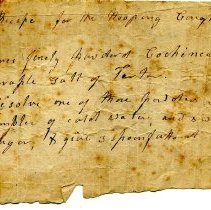 Recipe for the Hooping Cough
finely Powder'd Cochineal
salt of Tartar
dissolve one of those powders
tumbler of cold water, and
sugar, & give a spoonful